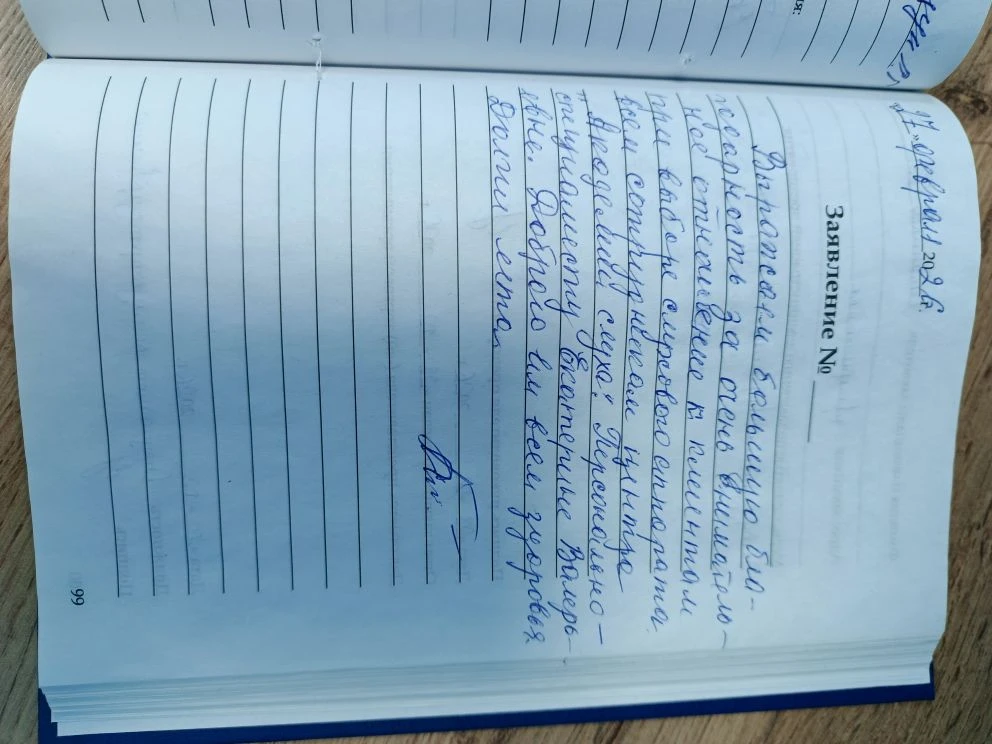 27 » февраля 2026г.
Заявление № ____
Выражаем большую бла-
годарность за очень вниматель-
ное отношение к клиентам
при выборе слухового аппарата
всем сотрудникам центра
"Академии слуха". Персонально -
специалисту Екатерине Валерь-
евне. Доброго им всем здоровья
Долгих лета
99